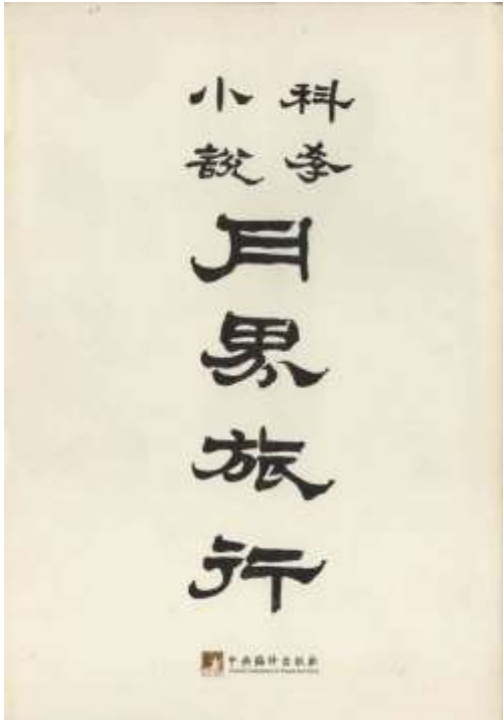 科学
小説
月界旅行
中央编译出版社